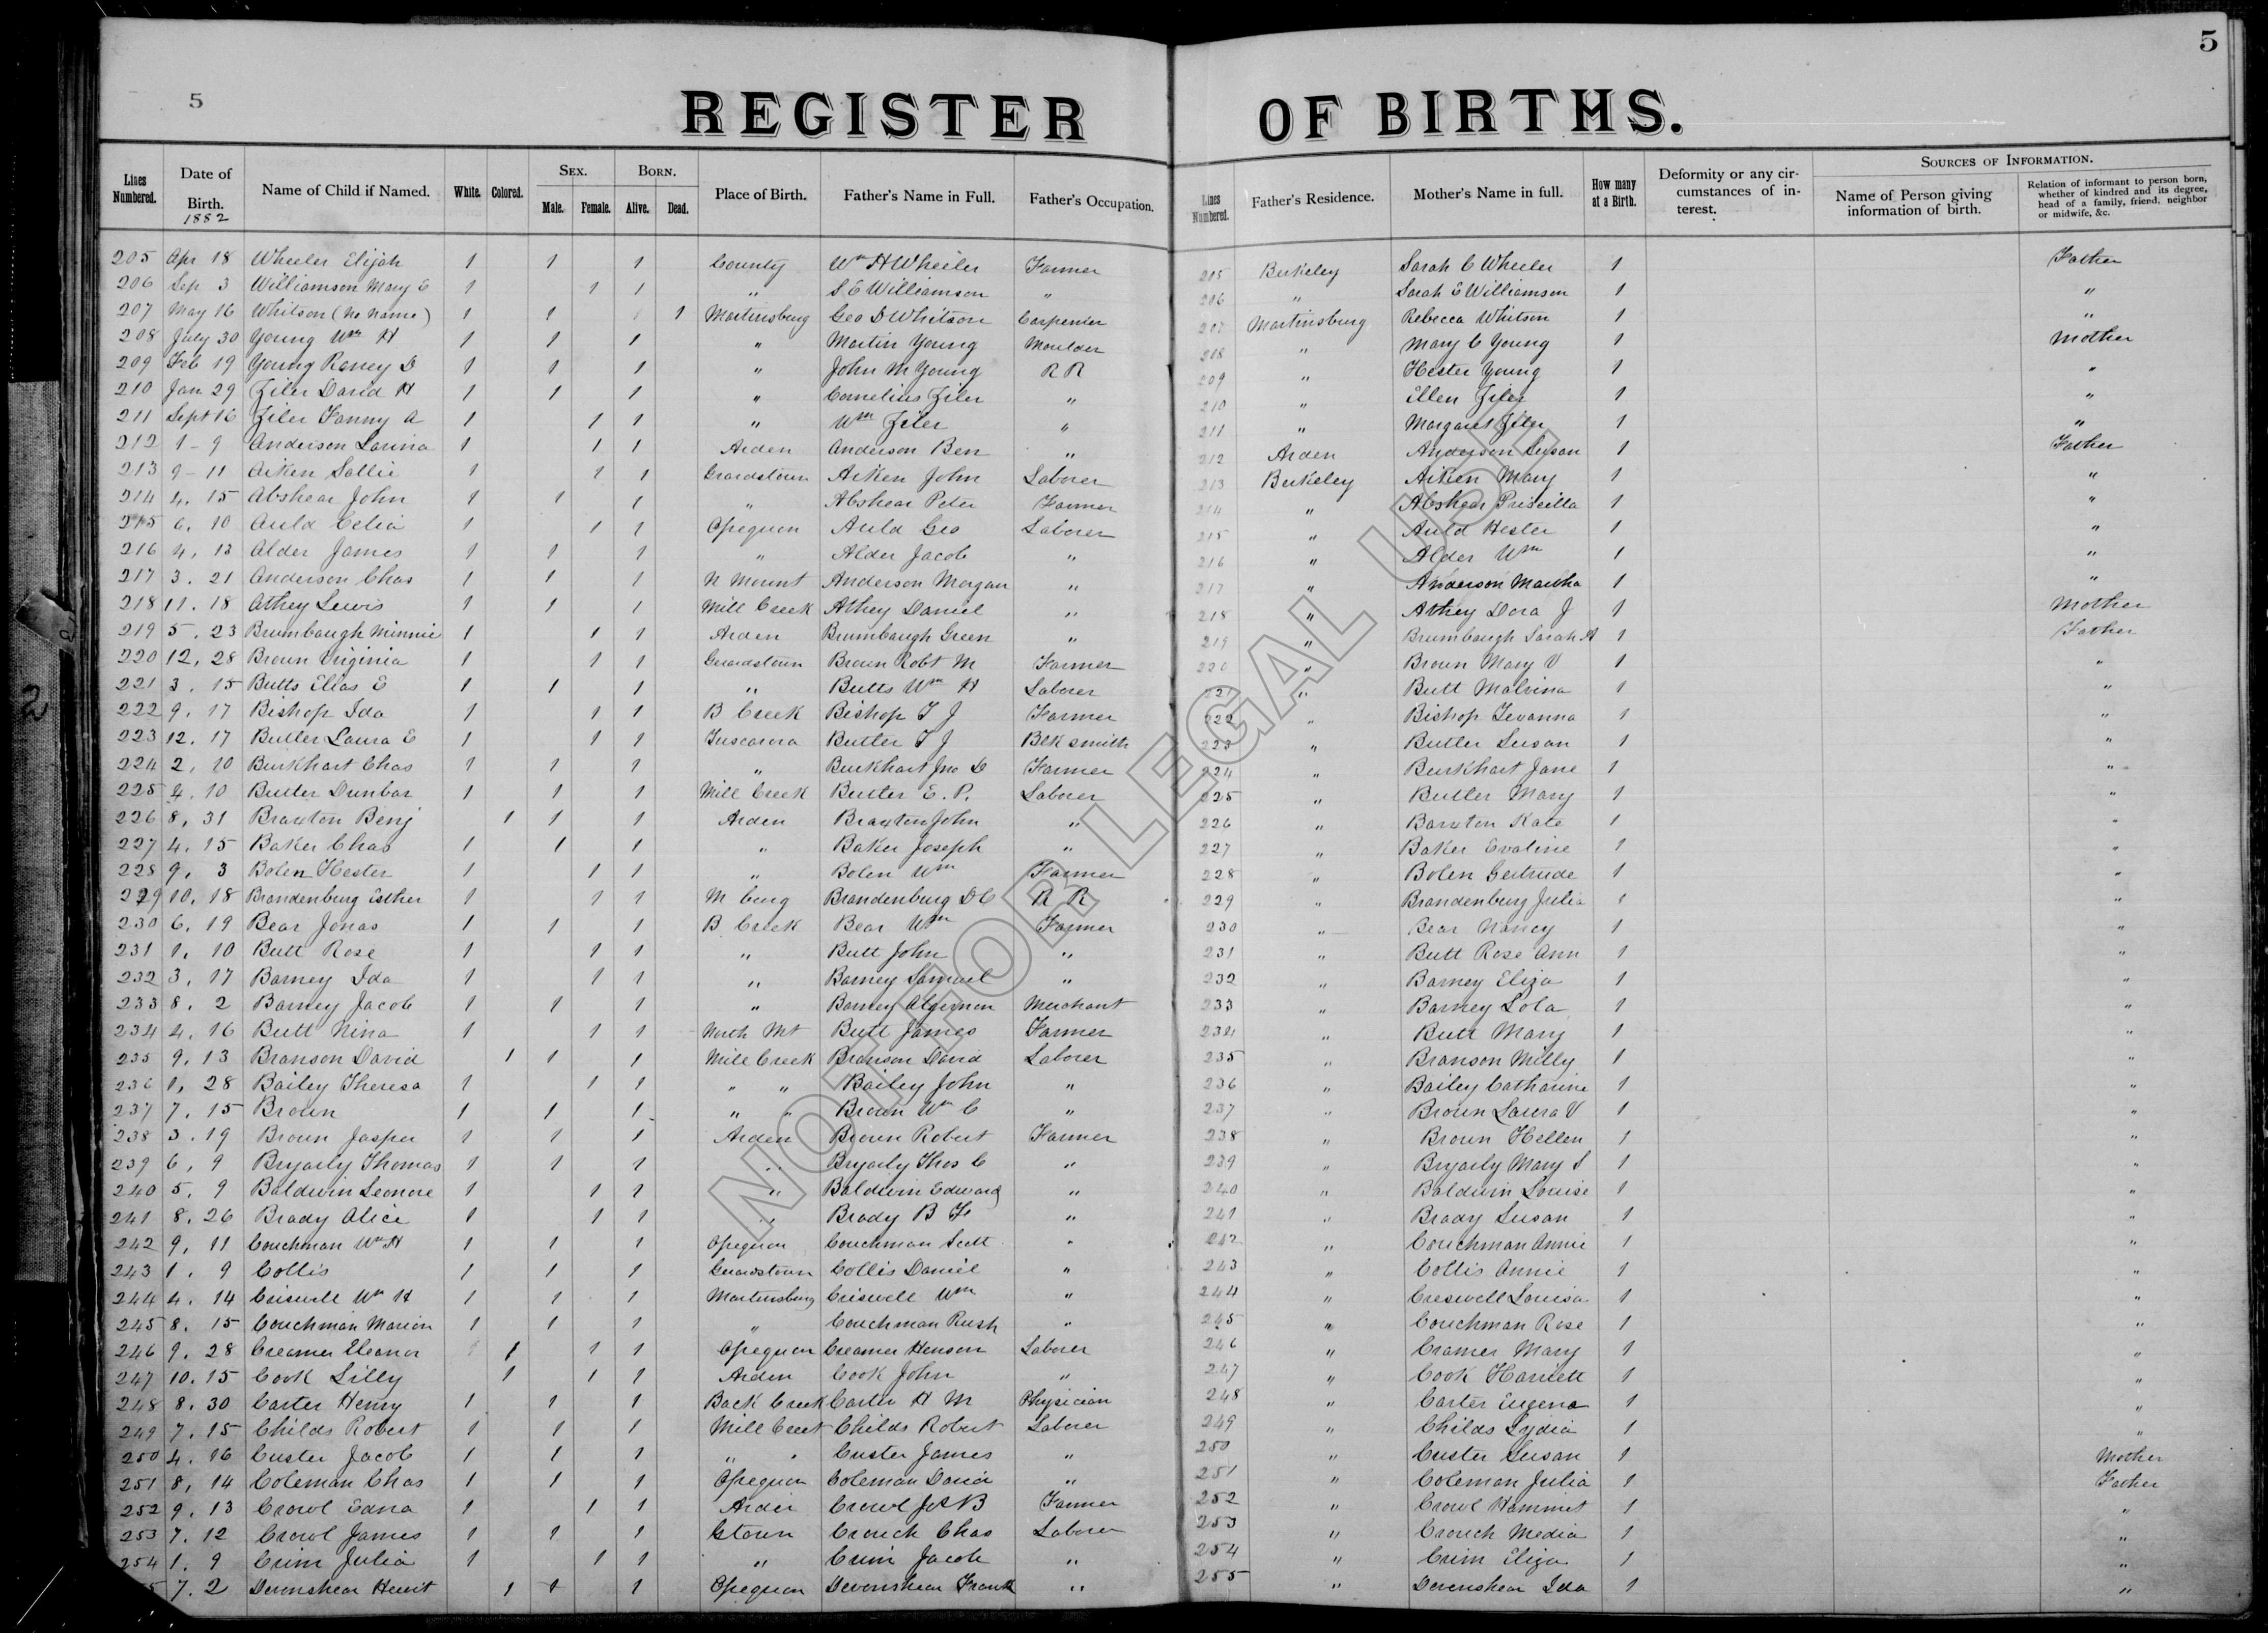 5
5
REGISTER OF BIRTHS.
Lines Numbered. Date of Birth. 1882 Name of Child if Named. White. Colored. SEX. Male. Female. BORN. Alive. Dead. Place of Birth. Father's Name in Full. Father's Occupation. Lines Numbered. Father's Residence. Mother's Name in full. How many at a Birth. Deformity or any circumstances of interest. SOURCES OF INFORMATION. Name of Person giving information of birth. Relation of informant to person born, whether of kindred and its degree, head of a family, friend, neighbor or midwife, &c.
205 Apr 18 Wheeler Elijah 1 1 1 County Wm H Wheeler Farmer 205 Berkeley Sarah C Wheeler 1 Father
206 Sep 3 Williamson Mary E 1 1 1 " S E Williamson " 206 " Sarah E Williamson 1 "
207 May 16 Whitson (no name) 1 1 1 Martinsburg Geo D Whitson Carpenter 207 Martinsburg Rebecca Whitson 1 "
208 July 30 Young Wm H 1 1 1 " Martin Young Moulder 208 " Mary C Young 1 Mother
209 Feb 19 Young Raney D 1 1 1 " John M Young R R 209 " Hester Young 1 "
210 Jan 29 Ziler David H 1 1 1 " Cornelius Ziler " 210 " Ellen Ziler 1 "
211 Sept 16 Ziler Fanny A 1 1 1 " Wm Ziler " 211 " Margaret Ziler 1 "
212 1-9 Anderson Larina 1 1 1 Arden Anderson Ben " 212 Arden Anderson Susan 1 Father
213 9-11 Aiken Sallie 1 1 1 Gerardstown Aiken John Laborer 213 Berkeley Aiken Mary 1 "
214 4. 15 Abshear John 1 1 1 " Abshear Peter Farmer 214 " Abshear Priscilla 1 "
215 6. 10 Auld Celia 1 1 1 Opequon Auld Geo Laborer 215 " Auld Hester 1 "
216 4. 13 Alder James 1 1 1 " Alder Jacob " 216 " Alder Wm 1 "
217 3. 21 Anderson Chas 1 1 1 N Mount Anderson Morgan " 217 " Anderson Martha 1 "
218 11. 18 Athey Lewis 1 1 1 Mill Creek Athey Daniel " 218 " Athey Dora J 1 Mother
219 5. 23 Brumbaugh Minnie 1 1 1 Arden Brumbaugh Green " 219 " Brumbaugh Sarah A 1 Father
220 12. 28 Brown Virginia 1 1 1 Gerardstown Brown Robt M Farmer 220 " Brown Mary V 1 "
221 3. 15 Butts Ellas E 1 1 1 " Butts Wm H Laborer 221 " Butt Malvina 1 "
222 9. 17 Bishop Ida 1 1 1 B Creek Bishop T J Farmer 222 " Bishop Tevanna 1 "
223 12. 17 Butler Laura E 1 1 1 Tuscarora Butler T J Blk smith 223 " Butler Susan 1 "
224 2. 10 Burkhart Chas 1 1 1 " Burkhart Jno D Farmer 224 " Burkhart Jane 1 "
225 4. 10 Butler Dunbar 1 1 1 Mill Creek Butler E. P. Laborer 225 " Butler Mary 1 "
226 8. 31 Braxton Benj 1 1 1 Arden Braxton John " 226 " Barxton Kate 1 "
227 4. 15 Baker Chas 1 1 1 " Baker Joseph " 227 " Baker Evaline 1 "
228 9. 3 Bolen Hester 1 1 1 " Bolen Wm Farmer 228 " Bolen Gertrude 1 "
229 10. 18 Brandenburg Esther 1 1 1 M burg Brandenburg D C R R 229 " Brandenburg Julia 1 "
230 6. 19 Bear Jonas 1 1 1 B Creek Bear Wm Farmer 230 " Bear Nancy 1 "
231 1. 10 Butt Rose 1 1 1 " Butt John " 231 " Butt Rose Ann 1 "
232 3. 17 Barney Ida 1 1 1 " Barney Samuel " 232 " Barney Eliza 1 "
233 8. 2 Barney Jacob 1 1 1 " Barney Algernon Merchant 233 " Barney Lola 1 "
234 4. 16 Butt Nina 1 1 1 North Mt Butt James Farmer 234 " Butt Mary 1 "
235 9. 13 Branson David 1 1 1 Mill Creek Branson David Laborer 235 " Branson Milly 1 "
236 1. 28 Bailey Theresa 1 1 1 " " Bailey John " 236 " Bailey Catharine 1 "
237 7. 15 Brown 1 1 1 " " Brown Wm C " 237 " Brown Laura V 1 "
238 3. 19 Brown Jasper 1 1 1 Arden Brown Robert Farmer 238 " Brown Hellen 1 "
239 6. 9 Bryarly Thomas 1 1 1 " Bryarly Thos C " 239 " Bryarly Mary S 1 "
240 5. 9 Baldwin Leonore 1 1 1 " Baldwin Edward " 240 " Baldwin Louise 1 "
241 8. 26 Brady Alice 1 1 1 " Brady B F " 241 " Brady Susan 1 "
242 9. 11 Couchman Wm H 1 1 1 Opequon Couchman Scott " 242 " Couchman Annie 1 "
243 1. 9 Collis 1 1 1 Gerardstown Collis Daniel " 243 " Collis Annie 1 "
244 4. 14 Criswell Wm H 1 1 1 Martinsburg Criswell Wm " 244 " Creswell Louisa 1 "
245 8. 15 Couchman Marion 1 1 1 " Couchman Rush " 245 " Couchman Rose 1 "
246 9. 28 Creamer Eleanor 1 1 1 Opequon Creamer Henson Laborer 246 " Cramer Mary 1 "
247 10. 15 Cook Lilly 1 1 1 Arden Cook John " 247 " Cook Harriett 1 "
248 8. 30 Carter Henry 1 1 1 Back Creek Carter H M Physician 248 " Carter Eugena 1 "
249 7. 15 Childs Robert 1 1 1 Mill Creek Childs Robert Laborer 249 " Childs Lydia 1 "
250 4. 16 Custer Jacob 1 1 1 " " Custer James " 250 " Custer Susan 1 Mother
251 8. 14 Coleman Chas 1 1 1 Opequon Coleman David " 251 " Coleman Julia 1 Father
252 9. 13 Crowl Edna 1 1 1 Arden Crowl Jos B Farmer 252 " Crowl Hammet 1 "
253 7. 12 Crowl James 1 1 1 Gtown Crouch Chas Laborer 253 " Crouch Media 1 "
254 1. 9 Crim Julia 1 1 1 " Crim Jacob " 254 " Crim Eliza 1 "
7. 2 Devonshear Hewit 1 1 1 Opequon Devonshear Frank " 255 " Devenshear Ida 1 "
NOT FOR LEGAL USE